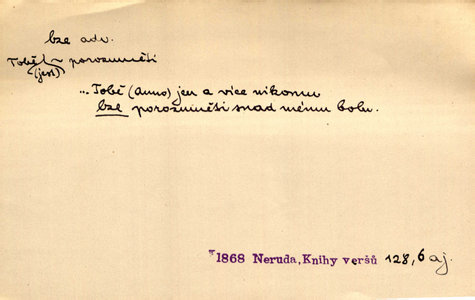 bze adv.
Tobě ~ porozuměti
(jest)
... Tobě (Anno) jen a více nikomu
bze porozuměti snad mému bolu.
*1868 Neruda, Knihy veršů 128,6 aj.